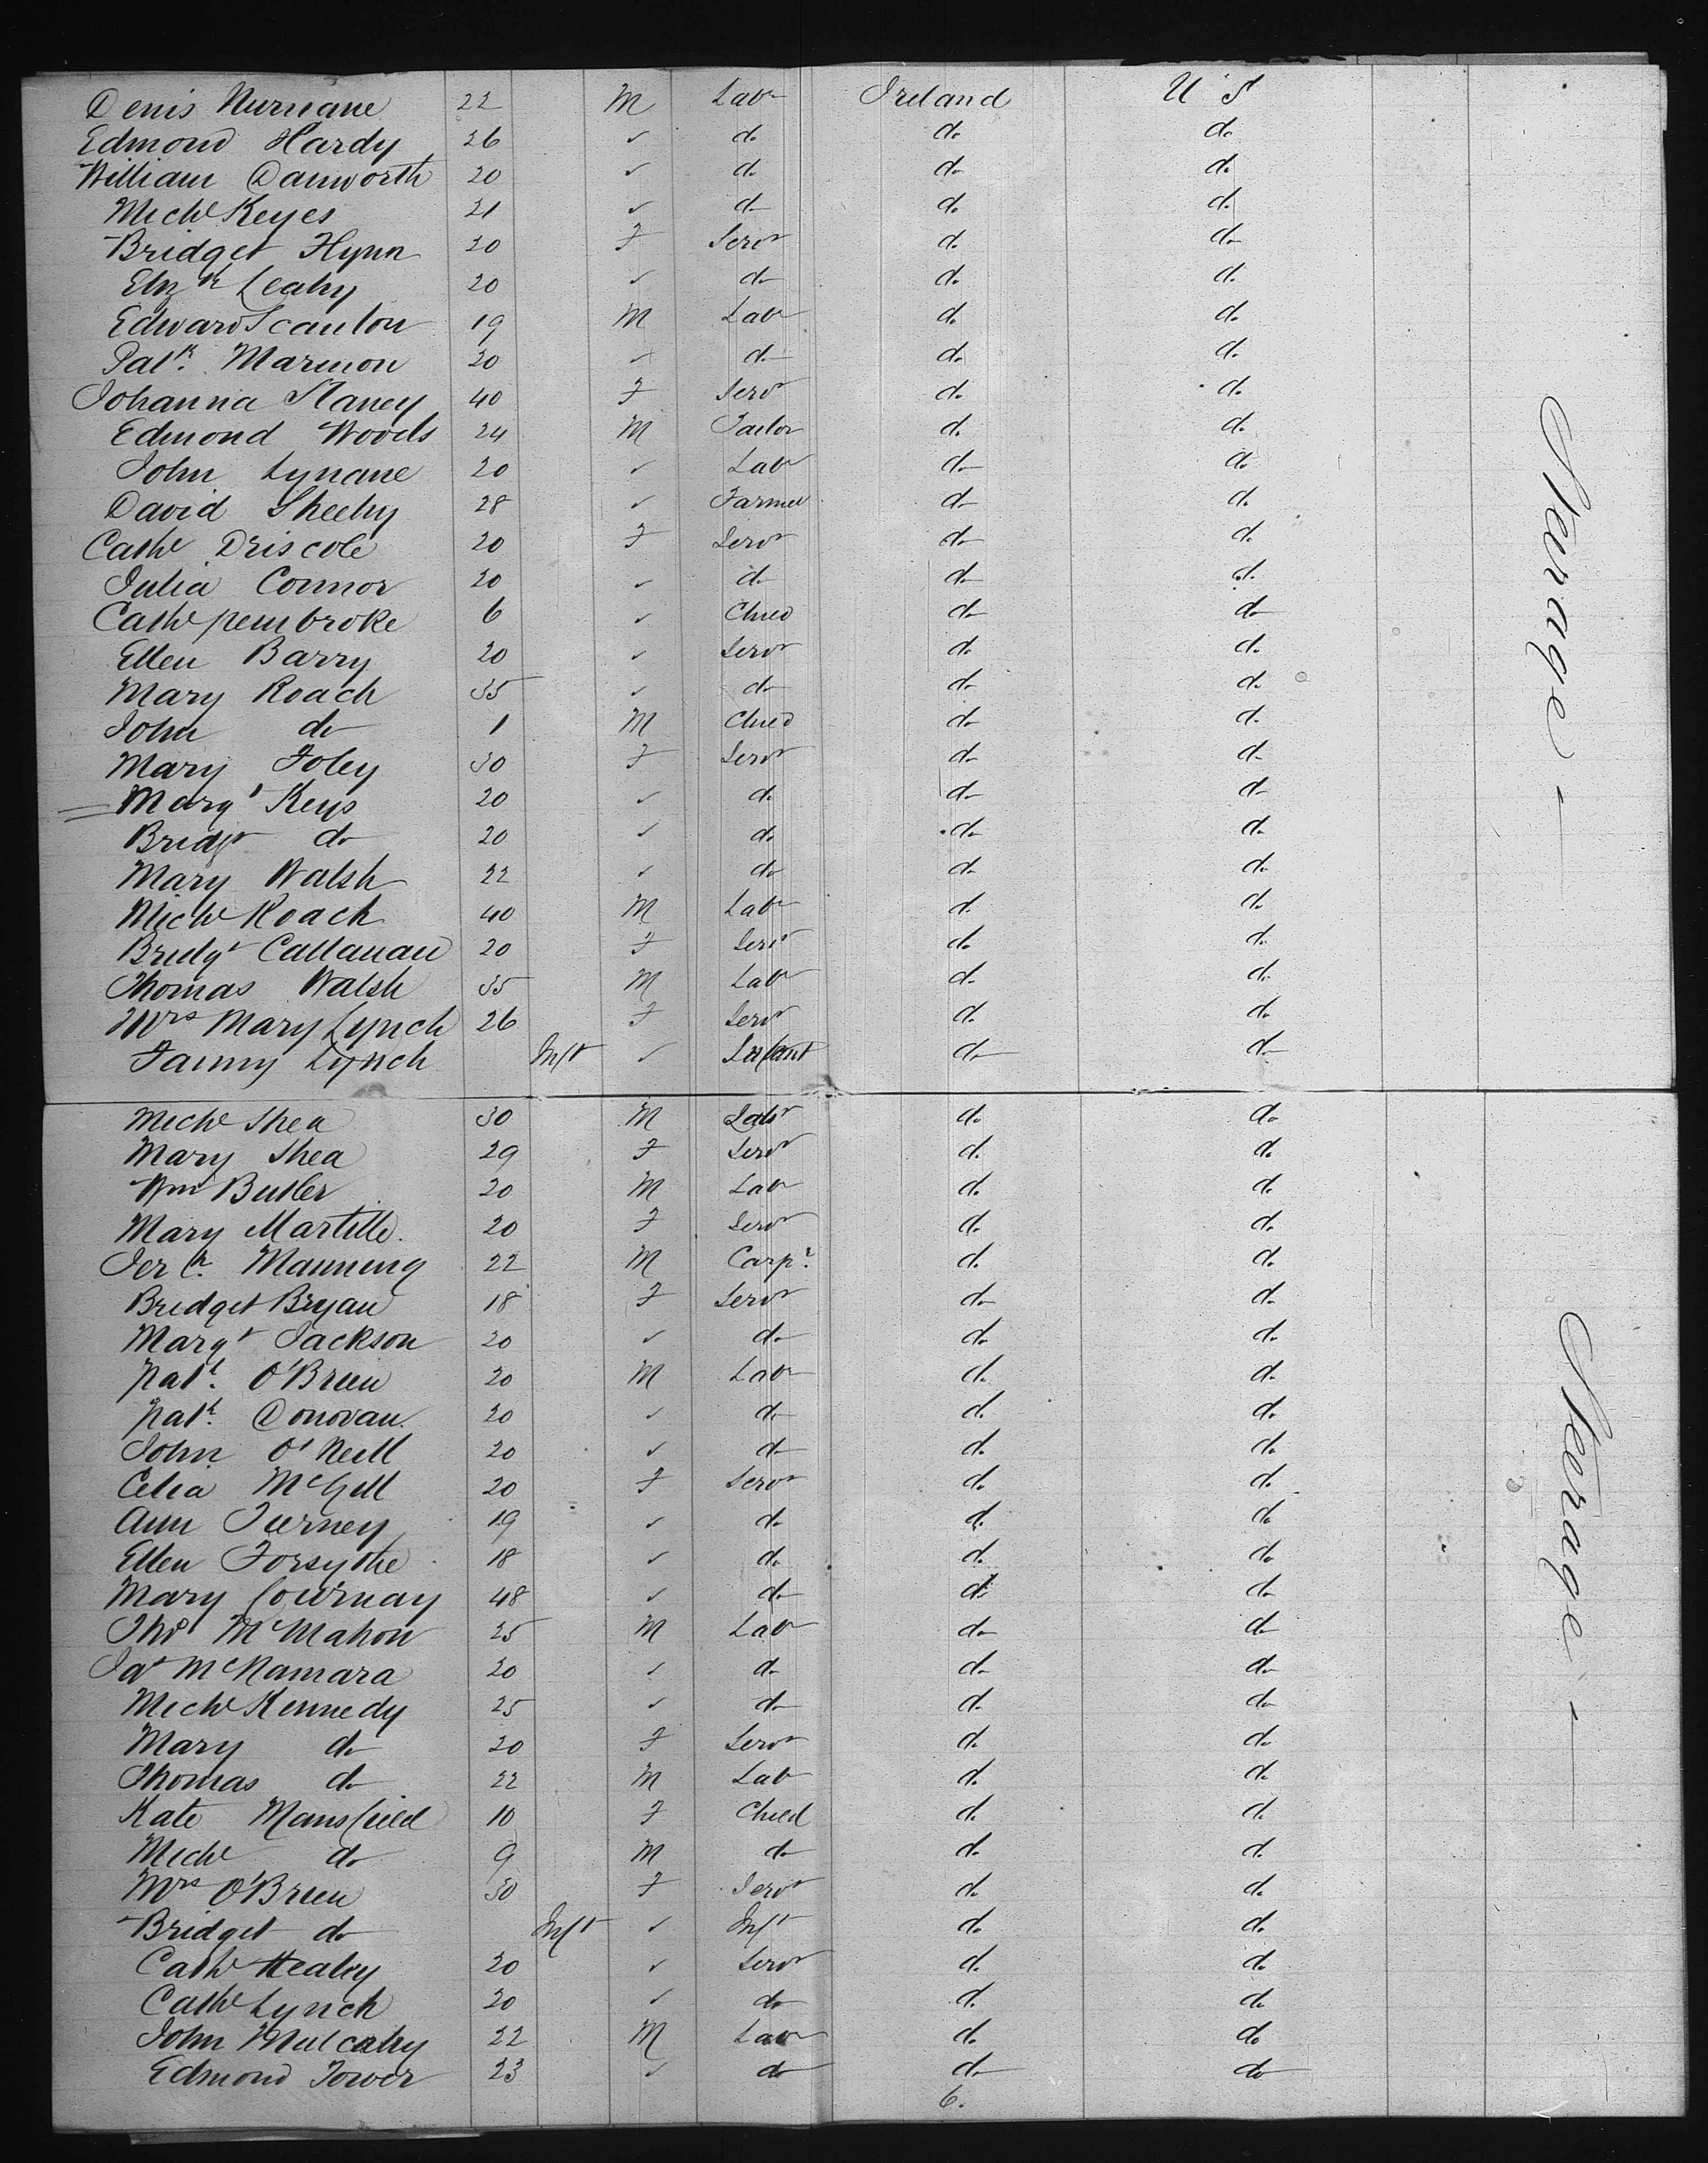 Denis Nurnane 22 M Labr Ireland U S
Edmond Hardy 26 ✓ do do do
William Danworth 20 ✓ do do do
Michl Keyes 21 ✓ do do do
Bridget Flynn 20 F Servt do do
Elizth Leahy 20 ✓ do do do
Edward Scanlon 19 M Labr do do
Patk Marmon 20 ✓ do do do
Johanna Slaney 40 F Servt do do
Edmond Woods 24 M Tailor do do
John Lynane 20 ✓ Labr do do
David Sheehy 28 ✓ Farmer do do
Cathe Driscole 20 F Servt do do
Julia Connor 20 ✓ do do do
Cathe pembroke 6 ✓ Child do do
Ellen Barry 20 ✓ Servt do do
Mary Roach 35 ✓ do do do
John do 1 M Child do do
Mary Foley 30 F Servt do do
Margt Keys 20 ✓ do do do
Bridgt do 20 ✓ do do do
Mary Walsh 22 ✓ do do do
Michl Roach 40 M Labr do do
Bridgt Callanan 20 F Servt do do
Thomas Walsh 35 M Labr do do
Mrs Mary Lynch 26 F Servt do do
Fanny Lynch Inft ✓ Infant do do
Steerage
Michl Shea 30 M Labr do do
Mary Shea 29 F Servt do do
Wm Butler 20 M Labr do do
Mary Martille 20 F Servt do do
Jerh Manning 22 M Carpr do do
Bridget Bryan 18 F Servt do do
Margt Jackson 20 ✓ do do do
Patk O'Brien 20 M Labr do do
Patk Donovan 20 ✓ do do do
John O'Neill 20 ✓ do do do
Celia McGill 20 F Servt do do
Ann Tierney 19 ✓ do do do
Ellen Forsythe 18 ✓ do do do
Mary Gournay 48 ✓ do do do
Thos McMahon 25 M Labr do do
Jas McNamara 20 ✓ do do do
Michl Kennedy 25 ✓ do do do
Mary do 20 F Servt do do
Thomas do 22 M Labr do do
Kate Mansfield 10 F Child do do
Michl do 9 M do do do
Mrs O'Brien 30 F Servt do do
Bridget do Inft ✓ Inft do do
Cathe Healey 20 ✓ Servt do do
Cathe Lynch 20 ✓ do do do
John Mulcahy 22 M Labr do do
Edmond Tower 23 ✓ do do do
6.
Steerage